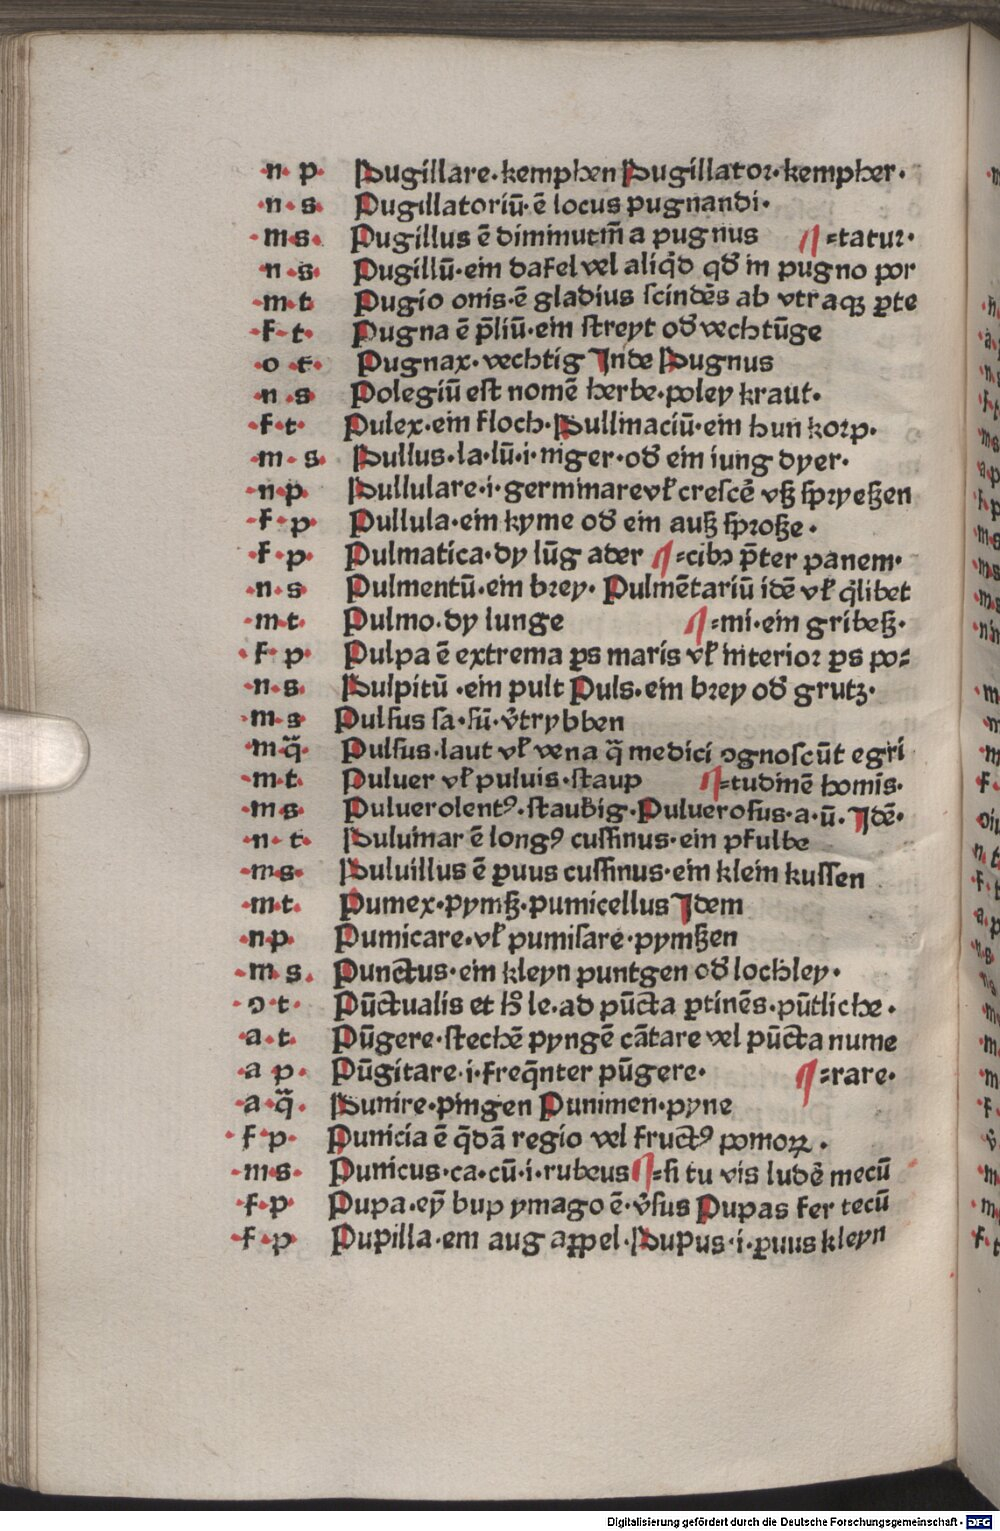 ·n· p· Pugillare·kemphen Pugillator·kempher·
·n·s· Pugillatoriū·ē locus pugnandi·
·m·s· Pugillus ē diminutiū a pugnus ⸗tatur·
·n·s· Pugillū·ein dafel vel aliq̄d qđ in pugno por
·m·t· Pugio onis·ē gladius scindēs ab vtraqꝫ ꝑte
·f·t· Pugna ē p̄liū·ein streyt ođ vechtūge
·o·t· Pugnax·vechtig Inde Pugnus
·n·s Polegiū est nomē herbe·poley kraut·
·f·t· Pulex·ein floch·Pullinaciū·ein hun korp·
·m·s· Pullus·la·lū·i·niger·ođ ein iung dyer·
·n·p· Pullulare·i·germinare vł crescē vß spryeßen
·f·p· Pullula·ein kyme ođ ein auß sproße·
·f·p· Pulmatica·dy lūg ader ⸗cibꝫ p̄ter panem·
·n·s Pulmentū·ein brey·Pulmētariū idē vł q̄libet
·m·t· Pulmo·dy lunge ⸗mi·ein gribeß·
·f·p· Pulpa ē extrema ꝑs maris vł interior ꝑs po⸗
·n·s· Pulpitū·ein pult Puls·ein brey ođ grutz·
·m·s Pulsus sa·sū·v̄trybben
·m·q̄· Pulsus·laut vł vena q̄ medici ꝯgnoscūt egri
·m·t· Puluer vł puluis·staup ⸗tudinē homis·
·m·s· Puluerolentꝰ·staubig·Puluerosus·a·ū·Idē·
·n·t· Puluinar ē longꝰ cussinus·ein pfulbe
·m·s· Puluillus ē ꝑuus cussinus·ein klein kussen
·m·t· Pumex·pymß·pumicellus Idem
·n·p· Pumicare·vł pumisare·pymßen
·m·s· Punctus·ein kleyn puntgen ođ lochley·
·ꝯ·t· Pūctualis et ħ le·ad pūcta ꝑtinēs·pūtliche·
·a·t· Pūgere·stechē pyngē cātare vel pūcta nume
·a p· Pūgitare·i·freq̄nter pūgere· ⸗rare·
·a·q̄· Punire·pingen Punimen·pyne
·f·p· Punicia ē q̄dā regio vel fructꝰ pomoꝝ·
·m·s· Punicus·ca·cū·i·rubeus ⸗si tu vis ludē mecū
·f·p· Pupa·eȳ bup ymago ē·v̄sus Pupas fer tecū
·f·p Pupilla·ein aug appel·Pupus·i·ꝑuus kleyn
Digitalisierung gefördert durch die Deutsche Forschungsgemeinschaft - DFG